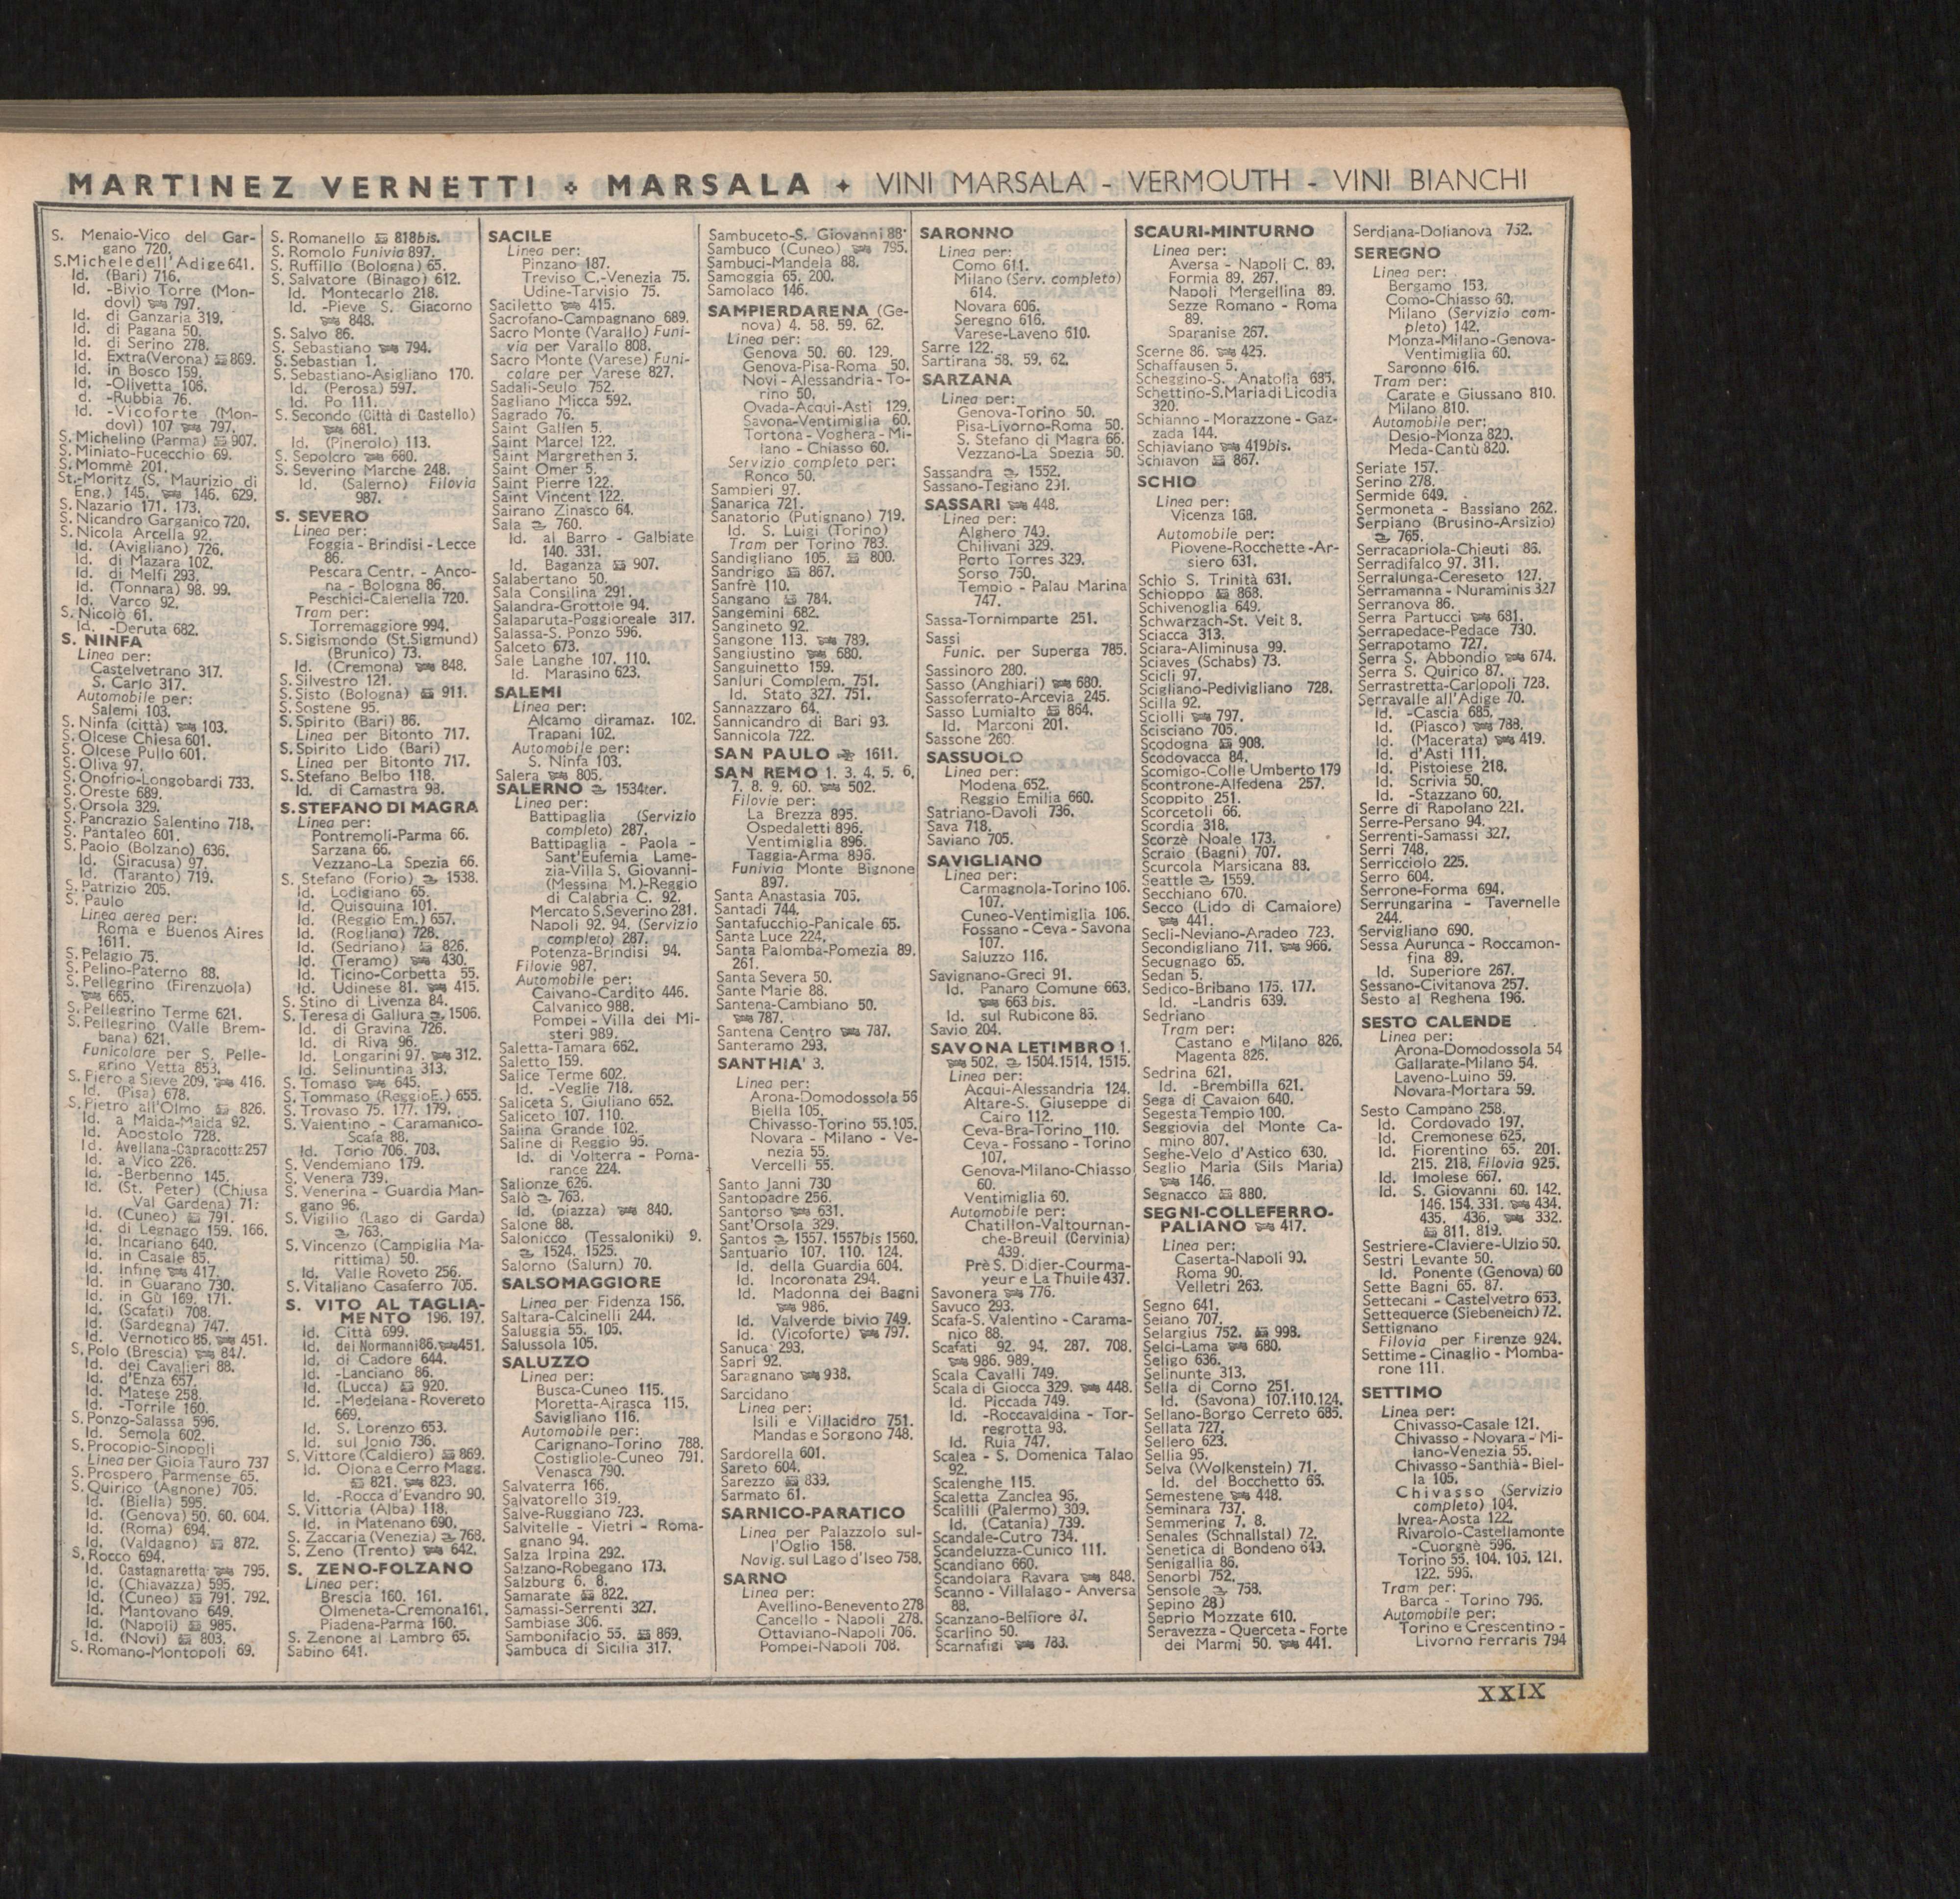 MARTINEZ VERNETTI ✦ MARSALA ✦ VINI MARSALA - VERMOUTH - VINI BIANCHI
S. Menaio-Vico del Gar-
gano 720.
S.Micheledell'Adige 641.
Id. (Bari) 716.
Id. -Bivio Torre (Mon-
dovì) 797.
Id. di Ganzaria 319.
Id. di Pagana 50.
Id. di Serino 278.
Id. Extra(Verona) 869.
Id. in Bosco 159.
Id. -Olivetta 106.
d. -Rubbia 76.
Id. -Vicoforte (Mon-
dovì) 107 797.
S. Michelino (Parma) 907.
S. Miniato-Fucecchio 69.
S. Mommè 201.
St.-Moritz (S. Maurizio di
Eng.) 145. 146. 629.
S. Nazario 171. 173.
S. Nicandro Garganico 720.
S. Nicola Arcella 92.
Id. (Avigliano) 726.
Id. di Mazara 102.
Id. di Melfi 293.
Id. (Tonnara) 98. 99.
Id. Varco 92.
S. Nicolò 61.
Id. -Deruta 682.
S. NINFA
Linea per:
Castelvetrano 317.
S. Carlo 317.
Automobile per:
Salemi 103.
S. Ninfa (città) 103.
S. Olcese Chiesa 601.
S. Olcese Pullo 601.
S. Oliva 97.
S. Onofrio-Longobardi 733.
S. Oreste 689.
S. Orsola 329.
S. Pancrazio Salentino 718.
S. Pantaleo 601.
S. Paolo (Bolzano) 636.
Id. (Siracusa) 97.
Id. (Taranto) 719.
S. Patrizio 205.
S. Paulo
Linea aerea per:
Roma e Buenos Aires
1611.
S. Pelagio 75.
S. Pelino-Paterno 88.
S. Pellegrino (Firenzuola)
665.
S. Pellegrino Terme 621.
S. Pellegrino (Valle Brem-
bana) 621.
Funicolare per S. Pelle-
grino Vetta 853.
S. Piero a Sieve 209. 416.
Id. (Pisa) 678.
S. Pietro all'Olmo 826.
Id. a Maida-Maida 92.
Id. Apostolo 728.
Id. Avellana-Capracotta 257
Id. a Vico 226.
Id. -Berbenno 145.
Id. (St. Peter) (Chiusa
Val Gardena) 71.
Id. (Cuneo) 791.
Id. di Legnago 159. 166.
Id. Incariano 640.
Id. in Casale 85.
Id. Infine 417.
Id. in Guarano 730.
Id. in Gù 169. 171.
Id. (Scafati) 708.
Id. (Sardegna) 747.
Id. Vernotico 86. 451.
S. Polo (Brescia) 847.
Id. dei Cavalieri 88.
Id. d'Enza 657.
Id. Matese 258.
Id. -Torrile 160.
S. Ponzo-Salassa 596.
Id. Semola 602.
S. Procopio-Sinopoli
Linea per Gioia Tauro 737
S. Prospero Parmense 65.
S. Quirico (Agnone) 705.
Id. (Biella) 595.
Id. (Genova) 50. 60. 604.
Id. (Roma) 694.
Id. (Valdagno) 872.
S. Rocco 694.
Id. Castagnaretta 795.
Id. (Chiavazza) 595.
Id. (Cuneo) 791. 792.
Id. Mantovano 649.
Id. (Napoli) 985.
Id. (Novi) 803.
S. Romano-Montopoli 69.
S. Romanello 818bis.
S. Romolo Funivia 897.
S. Ruffillo (Bologna) 65.
S. Salvatore (Binago) 612.
Id. Montecarlo 218.
Id. -Pieve S. Giacomo
848.
S. Salvo 86.
S. Sebastiano 794.
S. Sebastian 1.
S. Sebastiano-Asigliano 170.
Id. (Perosa) 597.
Id. Po 111.
S. Secondo (Città di Castello)
681.
Id. (Pinerolo) 113.
S. Sepolcro 680.
S. Severino Marche 248.
Id. (Salerno) Filovia
987.
S. SEVERO
Linea per:
Foggia - Brindisi - Lecce
86.
Pescara Centr. - Anco-
na - Bologna 86.
Peschici-Calenella 720.
Tram per:
Torremaggiore 994.
S. Sigismondo (St.Sigmund)
(Brunico) 73.
Id. (Cremona) 848.
S. Silvestro 121.
S. Sisto (Bologna) 911.
S. Sostene 95.
S. Spirito (Bari) 86.
Linea per Bitonto 717.
S. Spirito Lido (Bari)
Linea per Bitonto 717.
S. Stefano Belbo 118.
Id. di Camastra 98.
S. STEFANO DI MAGRA
Linea per:
Pontremoli-Parma 66.
Sarzana 66.
Vezzano-La Spezia 66.
S. Stefano (Forio) 1538.
Id. Lodigiano 65.
Id. Quisquina 101.
Id. (Reggio Em.) 657.
Id. (Rogliano) 728.
Id. (Sedriano) 826.
Id. (Teramo) 430.
Id. Ticino-Corbetta 55.
Id. Udinese 81. 415.
S. Stino di Livenza 84.
S. Teresa di Gallura 1506.
Id. di Gravina 726.
Id. di Riva 96.
Id. Longarini 97. 312.
Id. Selinuntina 313.
S. Tomaso 645.
S. Tommaso (ReggioE.) 655.
S. Trovaso 75. 177. 179.
S. Valentino - Caramanico-
Scafa 88.
Id. Torio 706. 708.
S. Vendemiano 179.
S. Venera 739.
S. Venerina - Guardia Man-
gano 96.
S. Vigilio (Lago di Garda)
763.
S. Vincenzo (Campiglia Ma-
rittima) 50.
Id. Valle Roveto 256.
S. Vitaliano Casaferro 705.
S. VITO AL TAGLIA-
MENTO 196. 197.
Id. Città 699.
Id. dei Normanni 86. 451.
Id. di Cadore 644.
Id. -Lanciano 86.
Id. (Lucca) 920.
Id. -Medelana-Rovereto
669.
Id. S. Lorenzo 653.
Id. sul Jonio 736.
S. Vittore (Caldiero) 869.
Id. Olona e Cerro Magg.
821. 823.
Id. -Rocca d'Evandro 90.
S. Vittoria (Alba) 118.
Id. in Matenano 690.
S. Zaccaria (Venezia) 768.
S. Zeno (Trento) 642.
S. ZENO-FOLZANO
Linea per:
Brescia 160. 161.
Olmeneta-Cremona 161.
Piadena-Parma 160.
S. Zenone al Lambro 65.
Sabino 641.
SACILE
Linea per:
Pinzano 187.
Treviso C.-Venezia 75.
Udine-Tarvisio 75.
Saciletto 415.
Sacrofano-Campagnano 689.
Sacro Monte (Varallo) Funi-
via per Varallo 808.
Sacro Monte (Varese) Funi-
colare per Varese 827.
Sadali-Seulo 752.
Sagliano Micca 592.
Sagrado 76.
Saint Gallen 5.
Saint Marcel 122.
Saint Margrethen 5.
Saint Omer 5.
Saint Pierre 122.
Saint Vincent 122.
Sairano Zinasco 64.
Sala 760.
Id. al Barro - Galbiate
140. 331.
Id. Baganza 907.
Salabertano 50.
Sala Consilina 291.
Salandra-Grottole 94.
Salaparuta-Poggioreale 317.
Salassa-S. Ponzo 596.
Salceto 673.
Sale Langhe 107. 110.
Id. Marasino 623.
SALEMI
Linea per:
Alcamo diramaz. 102.
Trapani 102.
Automobile per:
S. Ninfa 103.
Salera 805.
SALERNO 1534ter.
Linea per:
Battipaglia (Servizio
completo) 287.
Battipaglia - Paola -
Sant'Eufemia Lame-
zia-Villa S. Giovanni-
(Messina M.)-Reggio
di Calabria C. 92.
Mercato S.Severino 281.
Napoli 92. 94. (Servizio
completo) 287.
Potenza-Brindisi 94.
Filovie 987.
Automobile per:
Caivano-Cardito 446.
Calvanico 988.
Pompei - Villa dei Mi-
steri 989.
Saletta-Tamara 662.
Saletto 159.
Salice Terme 602.
Id. -Veglie 718.
Saliceta S. Giuliano 652.
Saliceto 107. 110.
Salina Grande 102.
Saline di Reggio 95.
Id. di Volterra - Poma-
rance 224.
Salionze 626.
Salò 763.
Id. (piazza) 840.
Salone 88.
Salonicco (Tessaloniki) 9.
1524. 1525.
Salorno (Salurn) 70.
SALSOMAGGIORE
Linea per Fidenza 156.
Saltara-Calcinelli 244.
Saluggia 55. 105.
Salussola 105.
SALUZZO
Linea per:
Busca-Cuneo 115.
Moretta-Airasca 115.
Savigliano 116.
Automobile per:
Carignano-Torino 788.
Costigliole-Cuneo 791.
Venasca 790.
Salvaterra 166.
Salvatorello 319.
Salve-Ruggiano 723.
Salvitelle - Vietri - Roma-
gnano 94.
Salza Irpina 292.
Salzano-Robegano 173.
Salzburg 6. 8.
Samarate 822.
Samassi-Serrenti 327.
Sambiase 306.
Sambonifacio 55. 869.
Sambuca di Sicilia 317.
Sambuceto-S. Giovanni 88
Sambuco (Cuneo) 795.
Sambuci-Mandela 88.
Samoggia 65. 200.
Samolaco 146.
SAMPIERDARENA (Ge-
nova) 4. 58. 59. 62.
Linea per:
Genova 50. 60. 129.
Genova-Pisa-Roma 50.
Novi - Alessandria - To-
rino 50.
Ovada-Acqui-Asti 129.
Savona-Ventimiglia 60.
Tortona - Voghera - Mi-
lano - Chiasso 60.
Servizio completo per:
Ronco 50.
Sampieri 97.
Sanarica 721.
Sanatorio (Putignano) 719.
Id. S. Luigi (Torino)
Tram per Torino 783.
Sandigliano 105. 800.
Sandrigo 867.
Sanfrè 110.
Sangano 784.
Sangemini 682.
Sangineto 92.
Sangone 113. 789.
Sangiustino 680.
Sanguinetto 159.
Sanluri Complem. 751.
Id. Stato 327. 751.
Sannazzaro 64.
Sannicandro di Bari 93.
Sannicola 722.
SAN PAULO 1611.
SAN REMO 1. 3. 4. 5. 6.
7. 8. 9. 60. 502.
Filovie per:
La Brezza 895.
Ospedaletti 896.
Ventimiglia 896.
Taggia-Arma 896.
Funivia Monte Bignone
897.
Santa Anastasia 705.
Santadi 744.
Santafucchio-Panicale 65.
Santa Luce 224.
Santa Palomba-Pomezia 89.
261.
Santa Severa 50.
Sante Marie 88.
Santena-Cambiano 50.
787.
Santena Centro 787.
Santeramo 293.
SANTHIA' 3.
Linea per:
Arona-Domodossola 56
Biella 105.
Chivasso-Torino 55.105.
Novara - Milano - Ve-
nezia 55.
Vercelli 55.
Santo Janni 730
Santopadre 256.
Santorso 631.
Sant'Orsola 329.
Santos 1557. 1557bis 1560.
Santuario 107. 110. 124.
Id. della Guardia 604.
Id. Incoronata 294.
Id. Madonna dei Bagni
986.
Id. Valverde bivio 749.
Id. (Vicoforte) 797.
Sanuca 293.
Sapri 92.
Saragnano 938.
Sarcidano
Linea per:
Isili e Villacidro 751.
Mandas e Sorgono 748.
Sardorella 601.
Sareto 604.
Sarezzo 839.
Sarmato 61.
SARNICO-PARATICO
Linea per Palazzolo sul-
l'Oglio 158.
Navig. sul Lago d'Iseo 758.
SARNO
Linea per:
Avellino-Benevento 278
Cancello - Napoli 278.
Ottaviano-Napoli 706.
Pompei-Napoli 708.
SARONNO
Linea per:
Como 611.
Milano (Serv. completo)
614.
Novara 606.
Seregno 616.
Varese-Laveno 610.
Sarre 122.
Sartirana 58. 59. 62.
SARZANA
Linea per:
Genova-Torino 50.
Pisa-Livorno-Roma 50.
S. Stefano di Magra 66.
Vezzano-La Spezia 50.
Sassandra 1552.
Sassano-Tegiano 291.
SASSARI 448.
Linea per:
Alghero 749.
Chilivani 329.
Porto Torres 329.
Sorso 750.
Tempio - Palau Marina
747.
Sassa-Tornimparte 251.
Sassi
Funic. per Superga 785.
Sassinoro 280.
Sasso (Anghiari) 680.
Sassoferrato-Arcevia 245.
Sasso Lumialto 864.
Id. Marconi 201.
Sassone 260.
SASSUOLO
Linea per:
Modena 652.
Reggio Emilia 660.
Satriano-Davoli 736.
Sava 718.
Saviano 705.
SAVIGLIANO
Linea per:
Carmagnola-Torino 106.
107.
Cuneo-Ventimiglia 106.
Fossano - Ceva - Savona
107.
Saluzzo 116.
Savignano-Greci 91.
Id. Panaro Comune 663.
663 bis.
Id. sul Rubicone 86.
Savio 204.
SAVONA LETIMBRO 1.
502. 1504.1514. 1515.
Linea per:
Acqui-Alessandria 124.
Altare-S. Giuseppe di
Cairo 112.
Ceva-Bra-Torino 110.
Ceva - Fossano - Torino
107.
Genova-Milano-Chiasso
60.
Ventimiglia 60.
Automobile per:
Chatillon-Valtournan-
che-Breuil (Cervinia)
439.
Prè S. Didier-Courma-
yeur e La Thuile 437.
Savonera 776.
Savuco 293.
Scafa-S. Valentino - Carama-
nico 88.
Scafati 92. 94. 287. 708.
986. 989.
Scala Cavalli 749.
Scala di Giocca 329. 448.
Id. Piccada 749.
Id. -Roccavaldina - Tor-
regrotta 98.
Id. Ruia 747.
Scalea - S. Domenica Talao
92.
Scalenghe 115.
Scaletta Zanclea 96.
Scalilli (Palermo) 309.
Id. (Catania) 739.
Scandale-Cutro 734.
Scandeluzza-Cunico 111.
Scandiano 660.
Scandolara Ravara 848.
Scanno - Villalago - Anversa
88.
Scanzano-Belfiore 87.
Scarlino 50.
Scarnafigi 788.
SCAURI-MINTURNO
Linea per:
Aversa - Napoli C. 89.
Formia 89. 267.
Napoli Mergellina 89.
Sezze Romano - Roma
89.
Sparanise 267.
Scerne 86. 425.
Schaffausen 5.
Scheggino-S. Anatolia 685.
Schettino-S.Maria di Licodia
320.
Schianno - Morazzone - Gaz-
zada 144.
Schiaviano 419bis.
Schiavon 867.
SCHIO
Linea per:
Vicenza 168.
Automobile per:
Piovene-Rocchette -Ar-
siero 631.
Schio S. Trinità 631.
Schioppo 868.
Schivenoglia 649.
Schwarzach-St. Veit 8.
Sciacca 313.
Sciara-Aliminusa 99.
Sciaves (Schabs) 73.
Scicli 97.
Scigliano-Pedivigliano 728.
Scilla 92.
Sciolli 797.
Scisciano 705.
Scodogna 908.
Scodovacca 84.
Scomigo-Colle Umberto 179
Scontrone-Alfedena 257.
Scoppito 251.
Scorcetoli 66.
Scordia 318.
Scorzè Noale 173.
Scraio (Bagni) 707.
Scurcola Marsicana 88.
Seattle 1559.
Secchiano 670.
Secco (Lido di Camaiore)
441.
Seclì-Neviano-Aradeo 723.
Secondigliano 711. 966.
Secugnago 65.
Sedan 5.
Sedico-Bribano 175. 177.
Id. -Landris 639.
Sedriano
Tram per:
Castano e Milano 826.
Magenta 826.
Sedrina 621.
Id. -Brembilla 621.
Sega di Cavaion 640.
Segesta Tempio 100.
Seggiovia del Monte Ca-
mino 807.
Seghe-Velo d'Astico 630.
Seglio Maria (Sils Maria)
146.
Segnacco 880.
SEGNI-COLLEFERRO-
PALIANO 417.
Linea per:
Caserta-Napoli 90.
Roma 90.
Velletri 263.
Segno 641.
Seiano 707.
Selargius 752. 998.
Selci-Lama 680.
Seligo 636.
Selinunte 313.
Sella di Corno 251.
Id. (Savona) 107.110.124.
Sellano-Borgo Cerreto 685.
Sellata 727.
Sellero 623.
Sellia 95.
Selva (Wolkenstein) 71.
Id. del Bocchetto 65.
Semestene 448.
Seminara 737.
Semmering 7. 8.
Senales (Schnallstal) 72.
Senetica di Bondeno 649.
Senigallia 86.
Senorbì 752.
Sensole 758.
Sepino 280
Seprio Mozzate 610.
Seravezza - Querceta - Forte
dei Marmi 50. 441.
Serdiana-Dolianova 752.
SEREGNO
Linea per:
Bergamo 153.
Como-Chiasso 60.
Milano (Servizio com-
pleto) 142.
Monza-Milano-Genova-
Ventimiglia 60.
Saronno 616.
Tram per:
Carate e Giussano 810.
Milano 810.
Automobile per:
Desio-Monza 820.
Meda-Cantù 820.
Seriate 157.
Serino 278.
Sermide 649.
Sermoneta - Bassiano 262.
Serpiano (Brusino-Arsizio)
765.
Serracapriola-Chieuti 86.
Serradifalco 97. 311.
Serralunga-Cereseto 127.
Serramanna - Nuraminis 327
Serranova 86.
Serra Partucci 681.
Serrapedace-Pedace 730.
Serrapotamo 727.
Serra S. Abbondio 674.
Serra S. Quirico 87.
Serrastretta-Carlopoli 728.
Serravalle all'Adige 70.
Id. -Cascia 685.
Id. (Piasco) 788.
Id. (Macerata) 419.
Id. d'Asti 111.
Id. Pistoiese 218.
Id. Scrivia 50.
Id. -Stazzano 60.
Serre di Rapolano 221.
Serre-Persano 94.
Serrenti-Samassi 327.
Serri 748.
Serricciolo 225.
Serro 604.
Serrone-Forma 694.
Serrungarina - Tavernelle
244.
Servigliano 690.
Sessa Aurunca - Roccamon-
fina 89.
Id. Superiore 267.
Sessano-Civitanova 257.
Sesto al Reghena 196.
SESTO CALENDE
Linea per:
Arona-Domodossola 54
Gallarate-Milano 54.
Laveno-Luino 59.
Novara-Mortara 59.
Sesto Campano 258.
Id. Cordovado 197.
Id. Cremonese 625.
Id. Fiorentino 65. 201.
215. 218. Filovia 925.
Id. Imolese 667.
Id. S. Giovanni 60. 142.
146. 154. 331. 434.
435. 436. 332.
811. 819.
Sestriere-Claviere-Ulzio 50.
Sestri Levante 50.
Id. Ponente (Genova) 60
Sette Bagni 65. 87.
Settecani - Castelvetro 653.
Settequerce (Siebeneich) 72.
Settignano
Filovia per Firenze 924.
Settime - Cinaglio - Momba-
rone 111.
SETTIMO
Linea per:
Chivasso-Casale 121.
Chivasso - Novara - Mi-
lano-Venezia 55.
Chivasso -Santhià- Biel-
la 105.
Chivasso (Servizio
completo) 104.
Ivrea-Aosta 122.
Rivarolo-Castellamonte
-Cuorgnè 596.
Torino 55. 104. 105. 121.
122. 596.
Tram per:
Barca - Torino 796.
Automobile per:
Torino e Crescentino -
Livorno Ferraris 794
XXIX